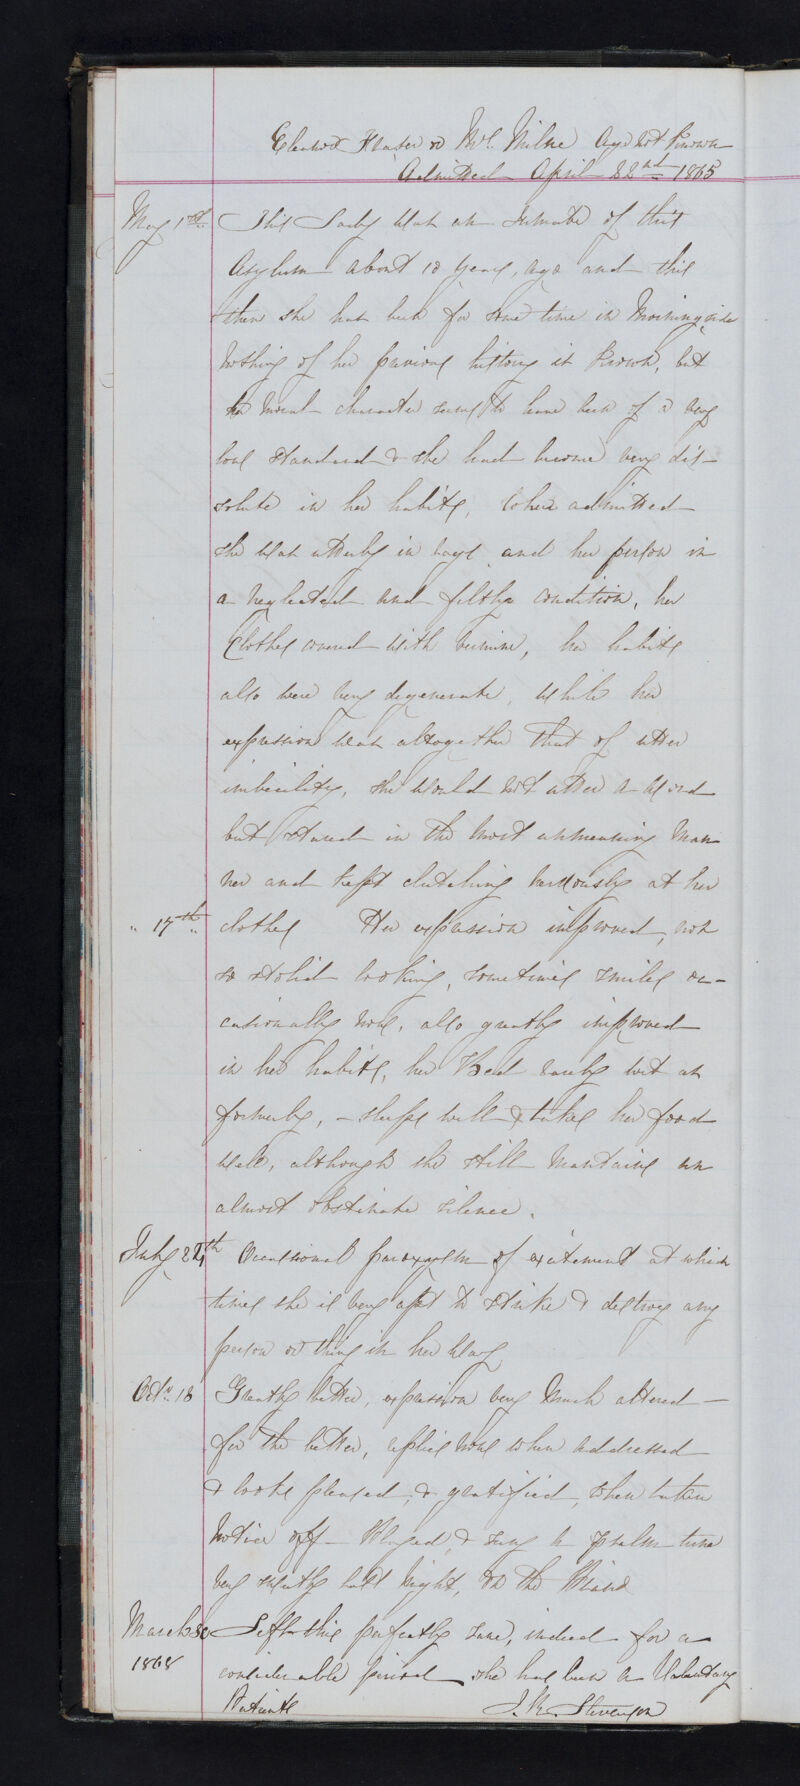 Eleanor Fraser or Mrs. Milne Age not Known
Admitted April 22nd 1865
May 1st This Lady was an Inmate of this
Asylum about 10 years, ago and this
then she has been for some time in Morningside
Nothing of her previous history is Known, but
her moral character seems to have been of a very
low standard & she had become very dis-
solute in her habits, When admitted
she was utterly in rags and her person in
a neglected and filthy condition, her
Clothes covered with vermine, her habits
also were very degenerate, while her
expression was altogether that of utter
imbecility, she would not utter a word
but stared in the most unmeaning man
ner and kept clutching nervously at her
" 17th " clothes Her expression improved, not
so stolid looking, sometimes smiles oc-
casionally now, also greatly improved
in her habits, her Bed rarely wet as
formerly, - sleeps well & takes her food
well, although she still mantains an
almost obstinate silence.
July 24th Occassional paroxysm of excitement at which
times she is very apt to strike & destroy any
person or thing in her way
Octr. 18 Greatly better, expression very much altered -
for the better, replies now when addressed
& looks pleased, & gratified, when taken
notice off - Played, & sung a psalm tune
very sweetly last night, on the Piano
March 30 Left this perfectly sane, indeed for a
1868 considerable period she has been a Voluntary
Patient J. M. Stevenson